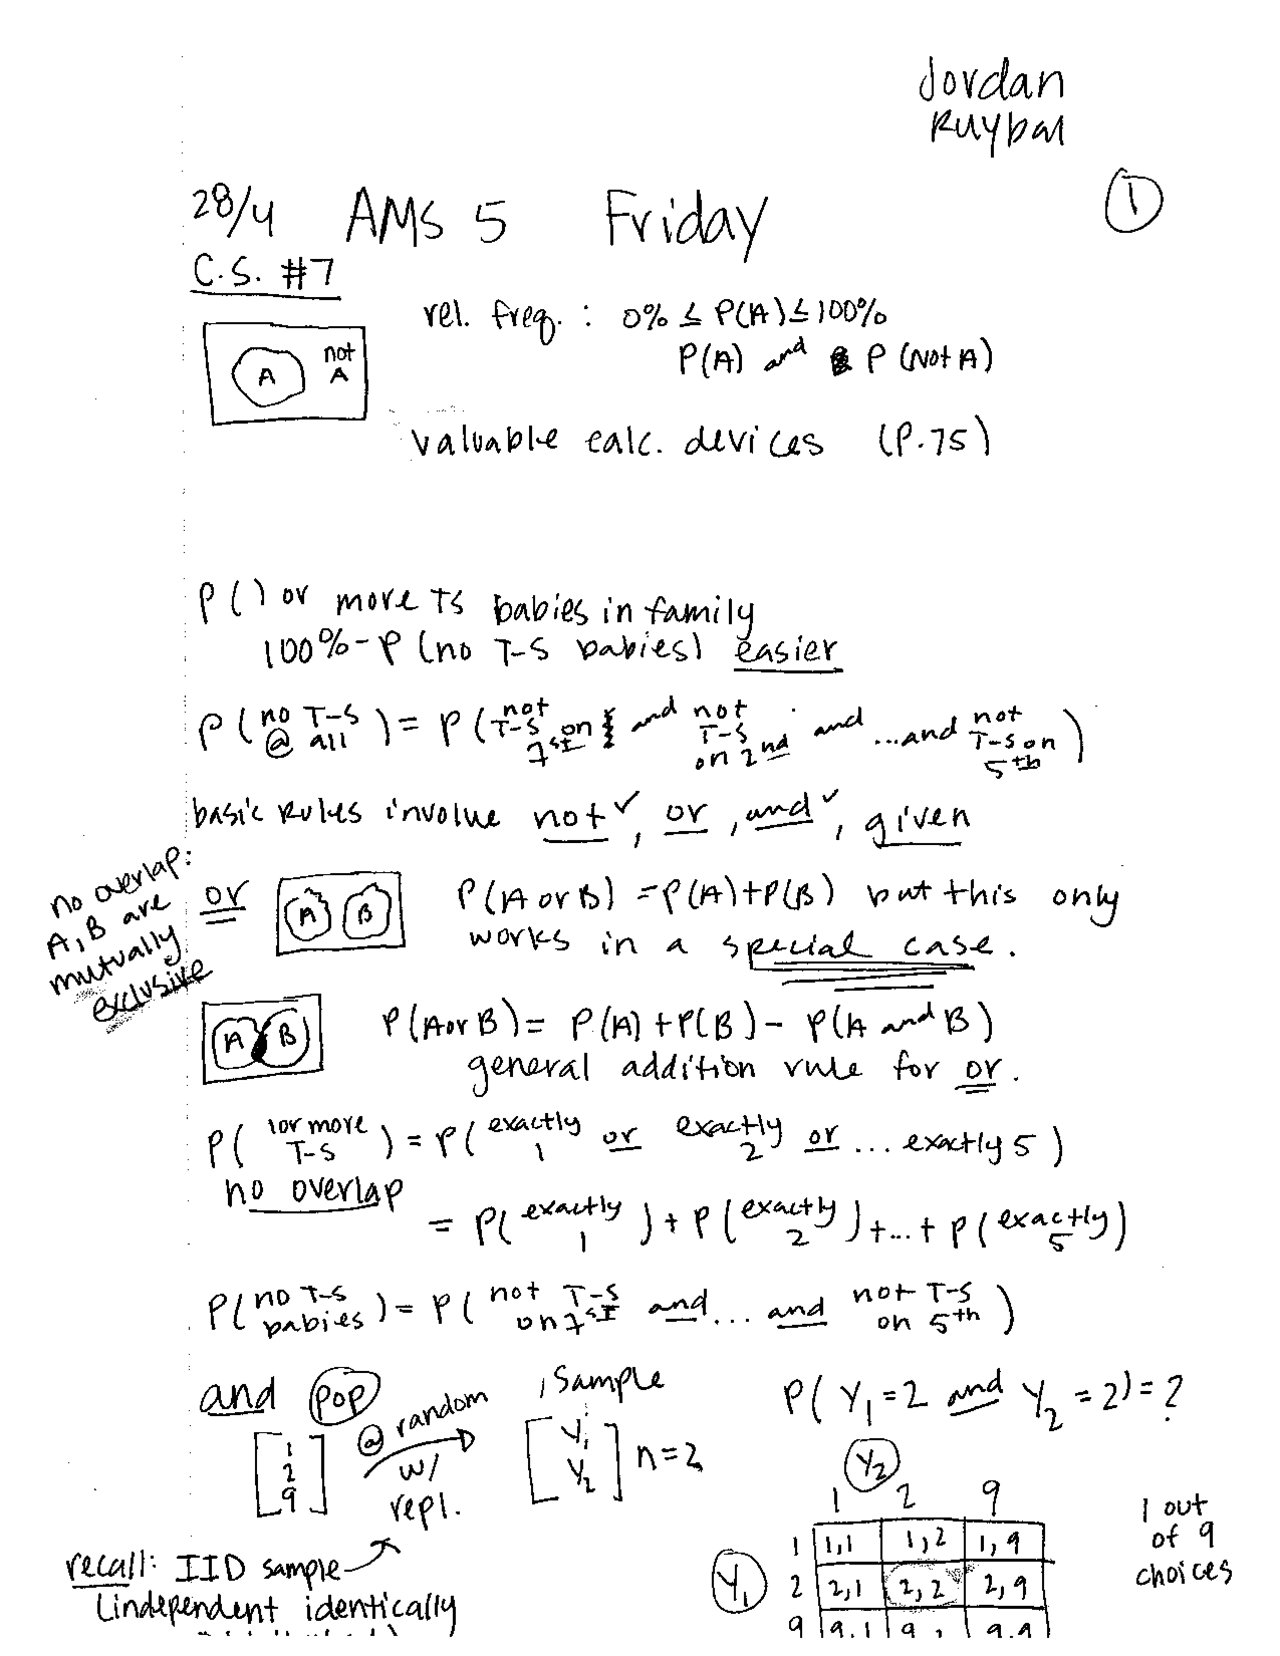 Jordan
Ruybal
1
28/4 AMS 5 Friday
C.S. #7
rel. freq. : 0% ≤ P(A) ≤ 100%
P(A) and P(Not A)
A not A
valuable calc. devices (P.75)
P(1 or more TS babies in family
100% - P(no T-S babies) easier
P(no T-S @ all) = P(not T-S on 1st and not T-S on 2nd and ...and not T-S on 5th)
basic rules involve not ✓, or, and ✓, given
no overlap:
A, B are
mutually
exclusive
or A B P(A or B) = P(A)+P(B) but this only
works in a special case.
A B P(A or B) = P(A) + P(B) - P(A and B)
general addition rule for or.
P(1 or more T-S) = P(exactly 1 or exactly 2 or ... exactly 5)
no overlap
= P(exactly 1) + P(exactly 2) +...+ P(exactly 5)
P(no T-S babies) = P(not T-S on 1st and ... and not T-S on 5th)
and pop @ random w/ repl. Sample P(Y1 = 2 and Y2 = 2) = ?
[1 2 9] [Y1 Y2] n=2
Y2
1 2 9
1 1,1 1,2 1,9
Y1 2 2,1 2,2 2,9
9 9,1 9, 9,9
1 out
of 9
choices
recall: IID sample
(independent identically